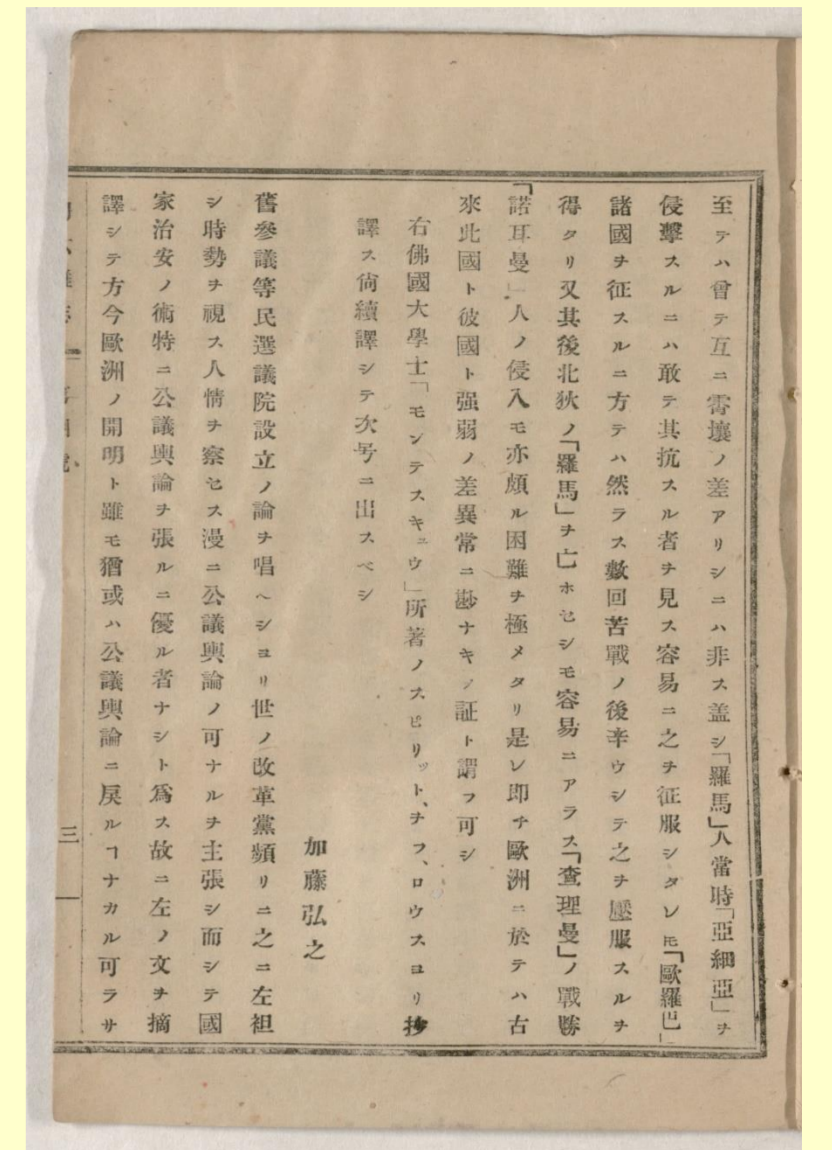 至テハ曾テ互ニ霄壤ノ差アリシニハ非ス盖シ「羅馬」人當時「亞細亞」ヲ
侵擊スルニハ敢テ其抗スル者ヲ見ス容易ニ之ヲ征服シタレ𪜈「歐羅巴」
諸國ヲ征スルニ方テハ然ラス數回苦戰ノ後辛ウシテ之ヲ壓服スルヲ
得タリ又其後北狄ノ「羅馬」ヲ亡ホセシモ容易ニアラス「査理曼」ノ戰勝
「諾耳曼」人ノ侵入モ亦頗ル困難ヲ極メタリ是レ即チ歐洲ニ於テハ古
來此國ト彼國ト强弱ノ差異常ニ尠ナキノ証ト謂フ可シ
右佛國大學士「モンテスキュウ」所著ノスピリット、ヲフ、ロウスヨリ抄
譯ス尙續譯シテ次号ニ出スベシ
加藤弘之
舊參議等民選議院設立ノ論ヲ唱ヘシヨリ世ノ改革黨頻リニ之ニ左袒
シ時勢ヲ視ス人情ヲ察セス漫ニ公議輿論ノ可ナルヲ主張シ而シテ國
家治安ノ術特ニ公議輿論ヲ張ルニ優ル者ナシト爲ス故ニ左ノ文ヲ摘
譯シテ方今歐洲ノ開明ト雖モ猶或ハ公議輿論ニ戾ルヿナカル可ラサ
三